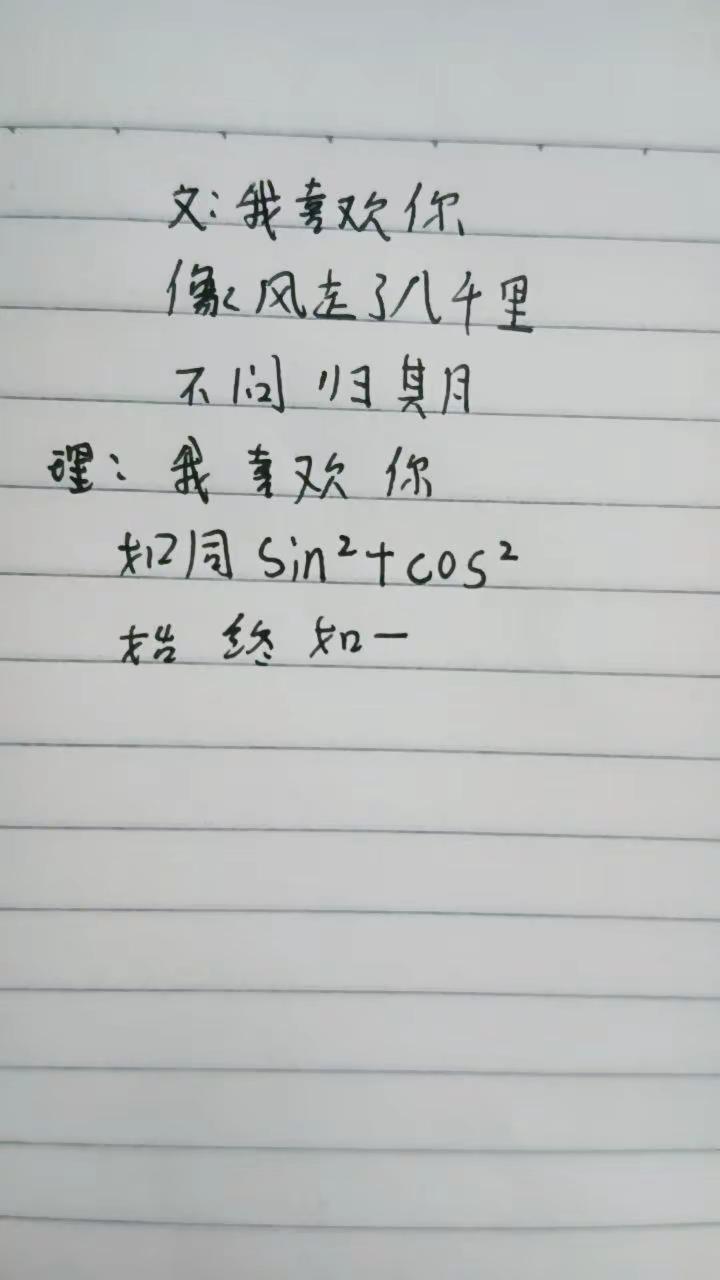 文:我喜欢你
像风走了八千里
不问归其月
理:我喜欢你
如同sin²+cos²
始终如一